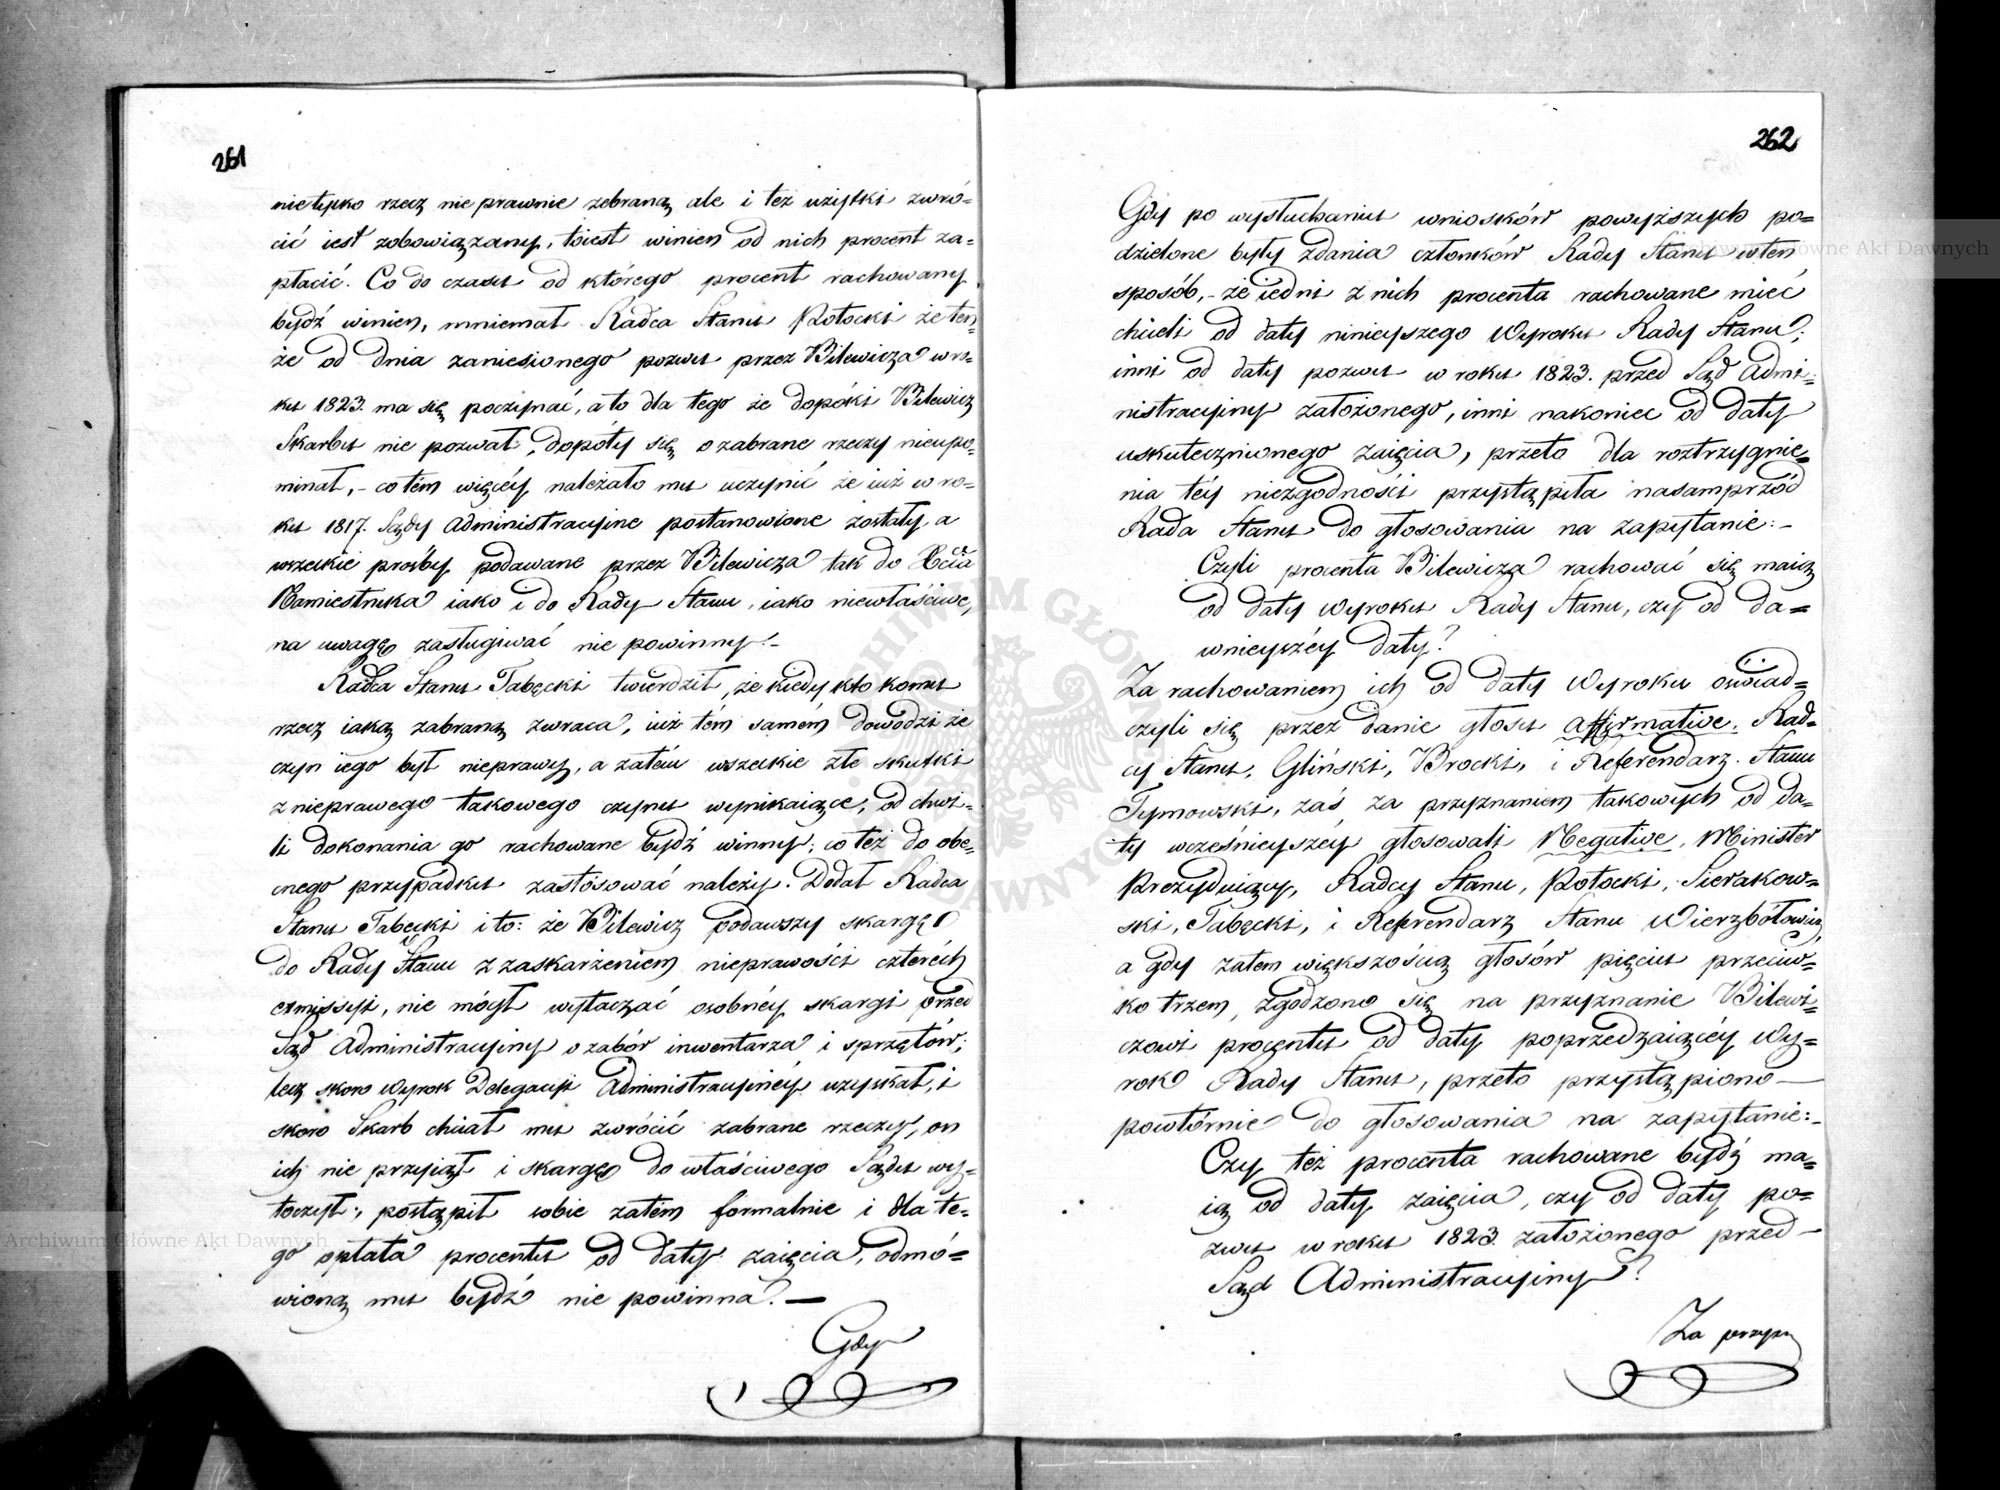 261
nietylko rzecz nieprawnie zebraną ale i też użytki zwró=
cić iest zobowiązany, toiest winien od nich procent za=
płacić. Co do czasu od którego procent rachowany
bydź winien, mniemał Radca Stanu Potocki że ten=
że od dnia zaniesionego pozwu przez Bilewicza w ro=
ku 1823. ma się poczynać, a to dla tego że dopóki Bilewicz
Skarbu nie pozwał, dopóty się o zabrane rzeczy nieupo=
minał, - co tém więcéy należało mu uczynić że iuż w ro=
ku 1817. Sądy Administracyine postanowione zostały, a
wszelkie prośby podawane przez Bilewicza tak do Xcia
Namiestnika iako i do Rady Stanu, iako niewłaściwe,
na uwagę zasługiwać nie powinny. -
Radca Stanu Tabęcki twierdził, że kiedy kto komu
rzecz iaką zabraną zwraca, iuż tém samém dowodzi że
czyn iego był nieprawy, a zatém wszelkie złe skutki
z nieprawego takowego czynu wynikaiące, od chwi=
li dokonania go rachowane bydź winny; co też do obe=
cnego przypadku zastósować należy. Dodał Radca
Stanu Tabęcki i to: że Bilewicz podawszy skargę
do Rady Stanu z zaskarżeniem nieprawości czterech
exmissyi, nie mógł wytaczać osobnéy skargi przed
Sąd Administracyiny o zabór inwentarza i sprzętów;
lecz skoro Wyrok Delegacyi Administracyinéy uzyskał, i
skoro Skarb chciał mu zwrócić zabrane rzeczy, on
ich nie przyiął i skargę do właściwego Sądu wy=
toczył; postąpił sobie zatém formalnie i dla te=
go opłata procentu od daty zaięcia, odmó=
wioną mu bydź nie powinna. —
Gdy
262
Gdy po wysłuchaniu wniosków powyższych po=
dzielone były zdania członków Rady Stanu w ten
sposób, - że iedni z nich procenta rachowane mieć
chcieli od daty ninieyszego Wyroku Rady Stanu;
inni od daty pozwu w roku 1823. przed Sąd Admi=
nistracyiny założonego, inni nakoniec od daty
uskutecznionego zaięcia, przeto dla roztrzygnie=
nia téy niezgodności przystąpiła nasamprzód
Rada Stanu do głosowania na zapytanie: -
Czyli procenta Bilewicza rachować się maią
od daty Wyroku Rady Stanu, czy od da=
wnieyszéy daty?
Za rachowaniem ich od daty Wyroku oświad=
czyli się przez danie głosu affirmative, Rad=
cy Stanu, Gliński, Brocki, i Referendarz Stanu
Tymowski, zaś za przyznaniem takowych od da=
ty wcześnieyszéy głosowali Negative, Minister
Prezyduiący, Radcy Stanu, Potocki, Sierakow=
ski, Tabęcki, i Referendarz Stanu Wierzbołowicz,
a gdy zatem większością głosów pięciu przeciw=
ko trzem, zgodzono się na przyznanie Bilewi=
czowi procentu od daty poprzedzaiącéy Wy=
rok Rady Stanu, przeto przystąpiono —
powtórnie do głosowania na zapytanie: -
Czy też procenta rachowane bydź ma=
ią od daty zaięcia, czy od daty po=
zwu w roku 1823. założonego przed —
Sąd Administracyiny?
Za przyzn
Archiwum Główne Akt Dawnych
Archiwum Główne Akt Dawnych
ARCHIWUM GŁÓWNE AKT DAWNYCH